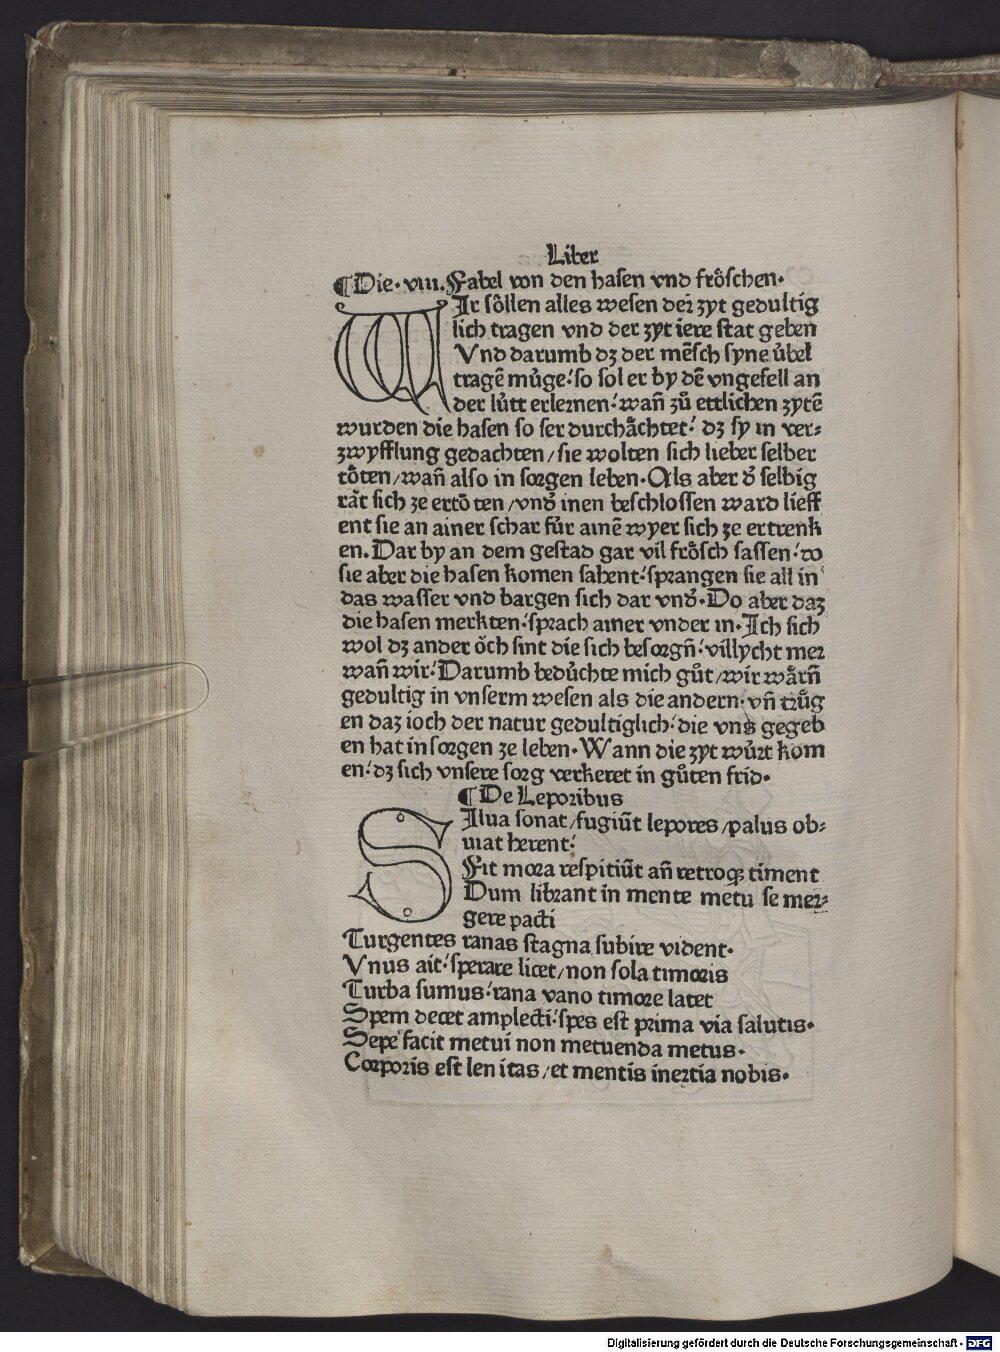 Liber
¶Die·viii.Fabel von den hasen vnd frȯschen·
WIr sȯllen alles wesen der zyt gedultig
lich tragen vnd der zyt iere stat geben
Vnd darumb dz der mēsch syne u̇bel
tragē mu̇ge: so sol er by dē vngefell an
der lu̇tt erlernen: wan̄ zů ettlichen zytē
wurden die hasen so ser durchȧchtet: dz sy in ver⸗
zwyfflung gedachten/sie wolten sich lieber selber
tȯten/wan̄ also in sorgen leben·Als aber d̕ selbig
rȧt sich ze ertȯ ten/vnd̕ inen beschlossen ward lieff
ent sie an ainer schar fu̇r ainē wyer sich ze ertrenk
en. Dar by an dem gestad gar vil frȯsch sassen: do
sie aber die hasen komen sahent: sprangen sie all in
das wasser vnd bargen sich dar vnd̕·Do aber daz
die hasen merkten: sprach ainer vnder in·Ich sich
wol dz ander ȯch sint die sich besorgn̄: villycht mer
wan̄ wir: Darumb bedu̇chte mich gůt/wir wȧrn̄
gedultig in vnserm wesen als die andern·vn̄ tru̇g
en daz ioch der natur gedultiglich: die vns gegeb
en hat in sorgen ze leben·Wann die zyt wu̇rt kom
en: dz sich vnsere sorg verkeret in gůten frid·
¶De Leporibus
SIlua sonat/fugiūt lepores/palus ob⸗
uiat herent:
Fit mora respitiūt an̄ retroqꝫ timent
Dum librant in mente metu se mer⸗
gere pacti
Turgentes ranas stagna subire vident·
Vnus ait: sperare licet/non sola timoris
Turba sumus: rana vano timore latet
Spem decet amplecti: spes est prima via salutis·
Sepe facit metui non metuenda metus·
Corporis est len itas/et mentis inertia nobis·
Digitalisierung gefördert durch die Deutsche Forschungsgemeinschaft - DFG